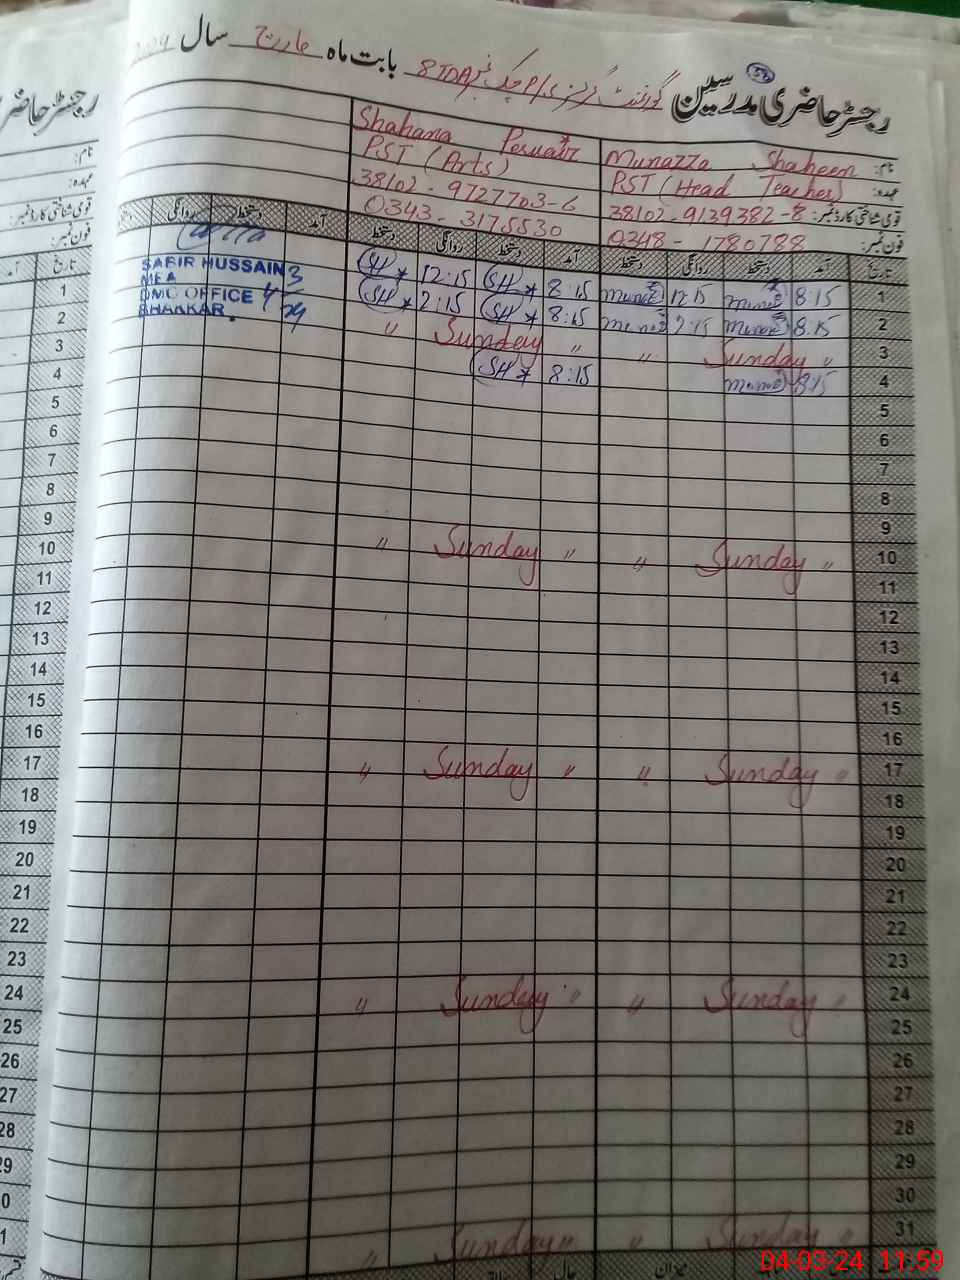 رجسٹر حاضری مدرسین
بابت ماہ مارچ سال
نام: Munazza Shaheen
Shahana
عہدہ: PST (Head Teacher)
PST (Arts)
قومی شناختی کارڈ نمبر: 38102-9139382-8
38102-9727703-6
فون نمبر: 0348-1780788
0343-3175530
تاریخ آمد دستخط روانگی دستخط آمد دستخط روانگی دستخط آمد دستخط روانگی دستخط
SABIR HUSSAIN
MEA
DMO OFFICE
BHAKKAR.
1 8:15 12:15 8:15 12:15
2 8:15 2:15 8:15 2:15
3 " Sunday " " Sunday "
4 8:15 8:15
5
6
7
8
9
10 " Sunday " " Sunday "
11
12
13
14
15
16
17 " Sunday " " Sunday "
18
19
20
21
22
23
24 " Sunday " " Sunday "
25
26
27
28
29
30
31 " Sunday " " Sunday "
میزان
رجسٹر حاضری
نام:
عہدہ:
قومی شناختی کارڈ نمبر:
فون نمبر:
تاریخ
1
2
3
4
5
6
7
8
9
10
11
12
13
14
15
16
17
18
19
20
21
22
23
24
25
26
27
28
29
04-03-24 11:59